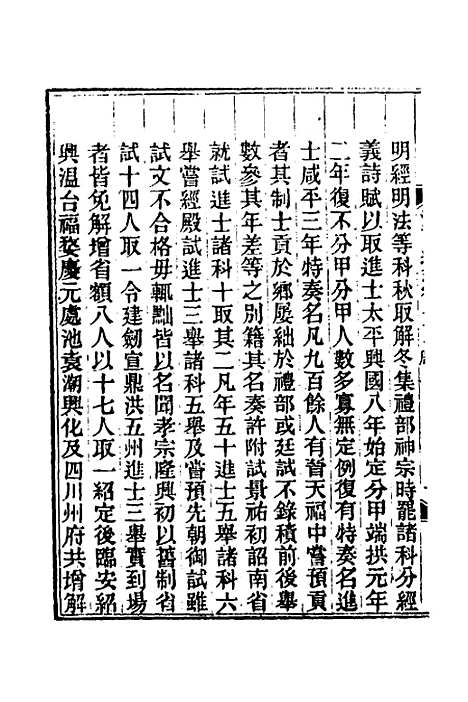 明經明法等科秋取解冬集禮部神宗時罷諸科分經
義詩賦以取進士太平興國八年始定分甲端拱元年
二年復不分甲分甲人數多寡無定例復有特奏名進
士咸平三年特奏名凡九百餘人有晉天福中嘗預貢
者其制士貢於鄉屢絀於禮部或廷試不錄積前後舉
數參其年差等之別籍其名奏許附試景祐初詔南省
就試進士諸科十取其二凡年五十進士五舉諸科六
舉嘗經殿試進士三舉諸科五舉及嘗預先朝御試雖
試文不合格毋輒黜皆以名聞孝宗隆興初以舊制省
試十四人取一令建劒宣鼎洪五州進士三舉實到場
者皆免解增省額八人以十七人取一紹定後臨安紹
興溫台福婺慶元處池袁潮興化及四川州府共增解